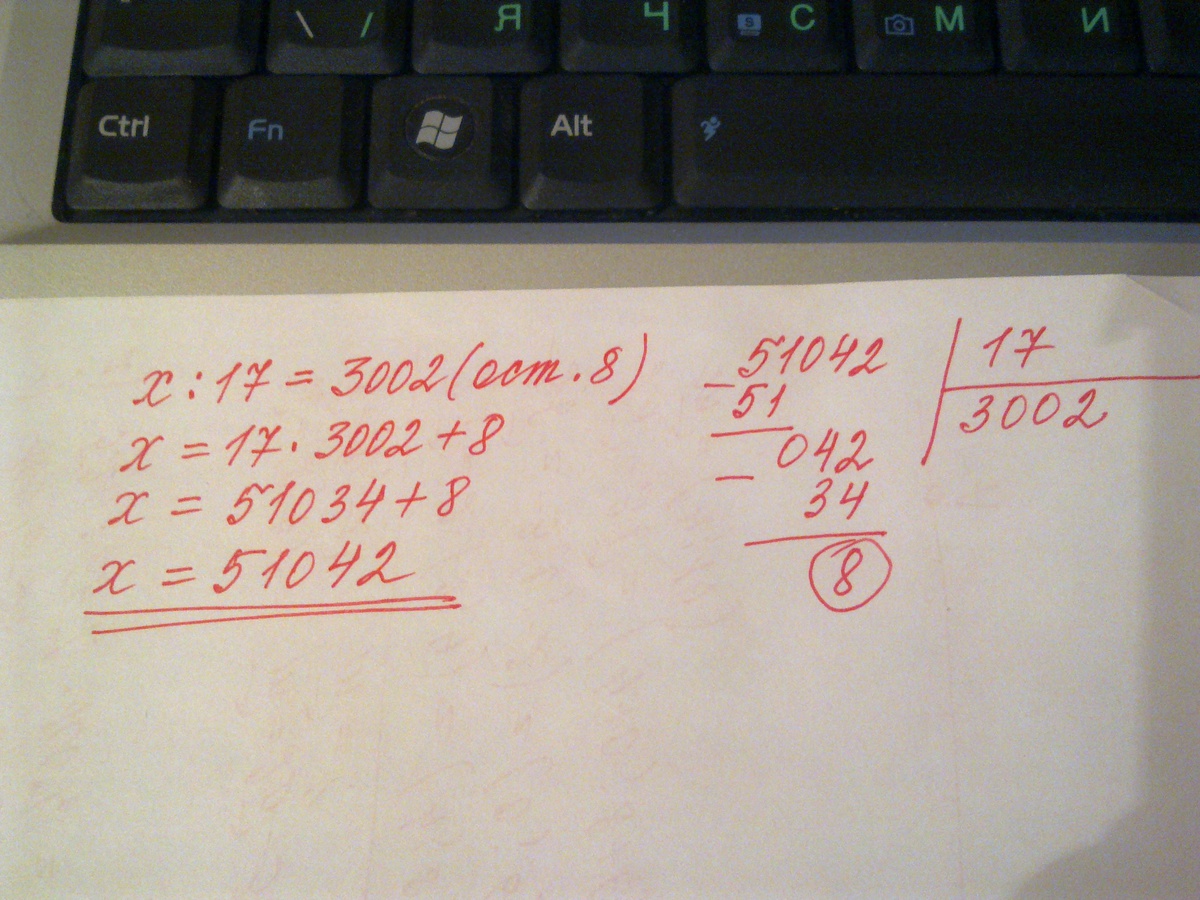 \ / Я Ч S С М И
Ctrl Fn Alt
x : 17 = 3002 (ост. 8)
x = 17 · 3002 + 8
x = 51034 + 8
x = 51042
51042 | 17
− 51 3002
042
− 34
8